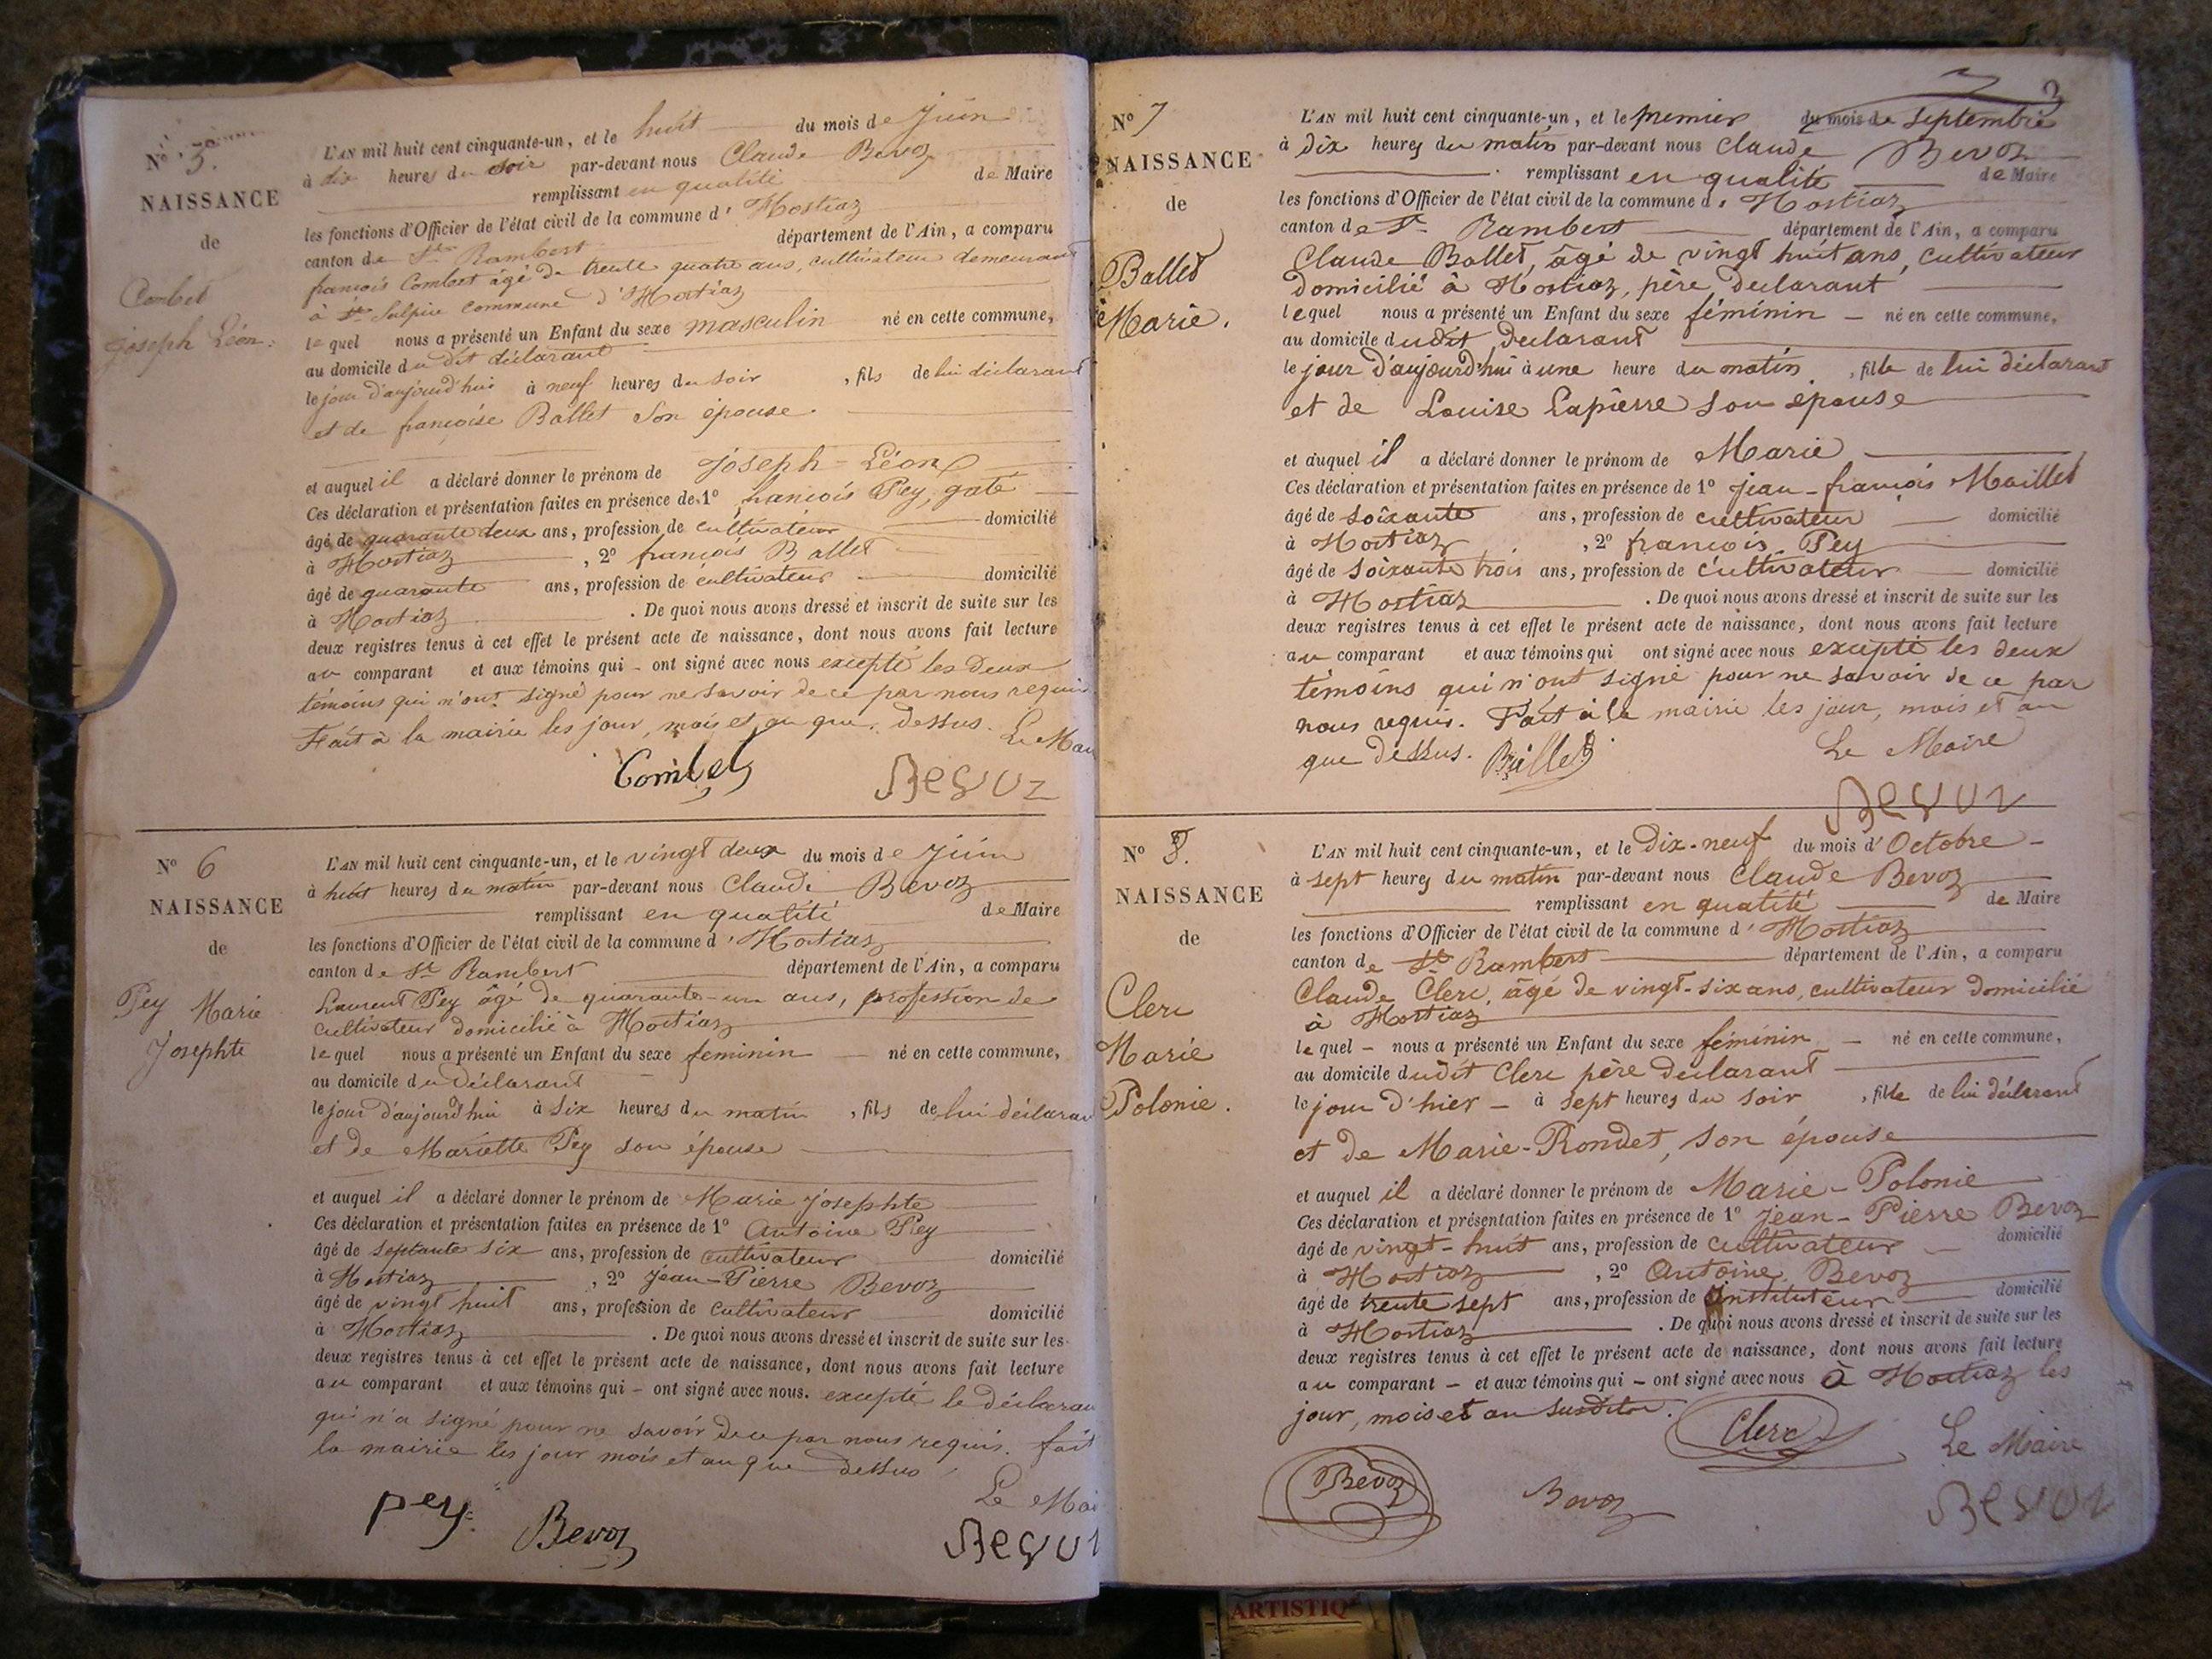 N° 5.
NAISSANCE
de
Combet
Joseph Léon.
L'AN mil huit cent cinquante-un, et le huit du mois de Juin
à dix heures du soir par-devant nous Claude Bevoz
remplissant en qualité de Maire
les fonctions d'Officier de l'état civil de la commune d' Hostiaz
canton de St Rambert département de l'Ain, a comparu
françois Combet âgé de trente quatre ans, cultivateur demeurant
à St Sulpice commune d'Hostiaz
lequel nous a présenté un Enfant du sexe masculin né en cette commune,
au domicile du dit déclarant
le jour d'aujourd'hui à neuf heures du soir , fils de lui déclarant
et de françoise Ballet son épouse.
et auquel il a déclaré donner le prénom de Joseph-Léon
Ces déclaration et présentation faites en présence de 1° françois Pey,
âgé de quarante deux ans, profession de cultivateur domicilié
à Hostiaz , 2° françois Ballet
âgé de quarante ans, profession de cultivateur domicilié
à Hostiaz . De quoi nous avons dressé et inscrit de suite sur les
deux registres tenus à cet effet le présent acte de naissance, dont nous avons fait lecture
au comparant et aux témoins qui - ont signé avec nous excepté les deux
témoins qui n'ont signé pour ne savoir de ce par nous requis.
Fait à la mairie les jour, mois et an que dessus. Le Mai
Combet Bevoz
N° 6
NAISSANCE
de
Pey Marie
Josephte
L'AN mil huit cent cinquante-un, et le vingt deux du mois de Juin
à huit heures du matin par-devant nous Claude Bevoz
remplissant en qualité de Maire
les fonctions d'Officier de l'état civil de la commune d' Hostiaz
canton de St Rambert département de l'Ain, a comparu
Laurent Pey âgé de quarante-un ans, profession de
cultivateur domicilié à Hostiaz
lequel nous a présenté un Enfant du sexe feminin né en cette commune,
au domicile du déclarant
le jour d'aujourd'hui à six heures du matin , fils de lui déclaran
et de Mariette Pey son épouse
et auquel il a déclaré donner le prénom de Marie Josephte
Ces déclaration et présentation faites en présence de 1° Antoine Pey
âgé de septante six ans, profession de cultivateur domicilié
à Hostiaz , 2° Jean-Pierre Bevoz
âgé de vingt huit ans, profession de cultivateur domicilié
à Hostiaz . De quoi nous avons dressé et inscrit de suite sur les
deux registres tenus à cet effet le présent acte de naissance, dont nous avons fait lecture
au comparant et aux témoins qui - ont signé avec nous. excepté le déclaran
qui n'a signé pour ne savoir de ce par nous requis. fait
la mairie les jour mois et an que dessus
Le Mai
pey. Bevoz Bevoz
N° 7
NAISSANCE
de
Ballet
Marie.
L'AN mil huit cent cinquante-un, et le premier du mois de septembre
à dix heures du matin par-devant nous Claude Bevoz
remplissant en qualité de Maire
les fonctions d'Officier de l'état civil de la commune d' Hostiaz
canton de St Rambert département de l'Ain, a comparu
Claude Ballet, âgé de vingt huit ans, cultivateur
domicilié à Hostiaz, père déclarant
lequel nous a présenté un Enfant du sexe féminin - né en cette commune,
au domicile dudit déclarant
le jour d'aujourd'hui à une heure du matin , fille de lui déclarant
et de Louise Lapierre son épouse
et auquel il a déclaré donner le prénom de Marie
Ces déclaration et présentation faites en présence de 1° Jean-françois Maillet
âgé de soixante ans, profession de cultivateur domicilié
à Hostiaz , 2° françois Pey
âgé de soixante trois ans, profession de cultivateur domicilié
à Hostiaz . De quoi nous avons dressé et inscrit de suite sur les
deux registres tenus à cet effet le présent acte de naissance, dont nous avons fait lecture
au comparant et aux témoins qui ont signé avec nous excepté les deux
témoins qui n'ont signé pour ne savoir de ce par
nous requis. Fait à la mairie les jour, mois et an
que dessus. Ballet Le Maire
Bevoz
N° 8.
NAISSANCE
de
Clerc
Marie
Polonie.
L'AN mil huit cent cinquante-un, et le dix-neuf du mois d' Octobre -
à sept heures du matin par-devant nous Claude Bevoz
remplissant en qualité de Maire
les fonctions d'Officier de l'état civil de la commune d' Hostiaz
canton de St Rambert département de l'Ain, a comparu
Claude Clerc, âgé de vingt-six ans, cultivateur domicilié
à Hostiaz
lequel - nous a présenté un Enfant du sexe féminin - né en cette commune,
au domicile dudit Clerc père déclarant
le jour d'hier - à sept heures du soir , fille de lui déclarant
et de Marie-Rondet, son épouse
et auquel il a déclaré donner le prénom de Marie-Polonie
Ces déclaration et présentation faites en présence de 1° Jean-Pierre Bevoz
âgé de vingt-huit ans, profession de cultivateur domicilié
à Hostiaz , 2° Antoine Bevoz
âgé de trente sept ans, profession de instituteur domicilié
à Hostiaz . De quoi nous avons dressé et inscrit de suite sur les
deux registres tenus à cet effet le présent acte de naissance, dont nous avons fait lecture
au comparant - et aux témoins qui - ont signé avec nous à Hostiaz les
jour, mois et an susdits.
Clerc Le Maire
Bevoz Bevoz Bevoz
ARTISTIQ